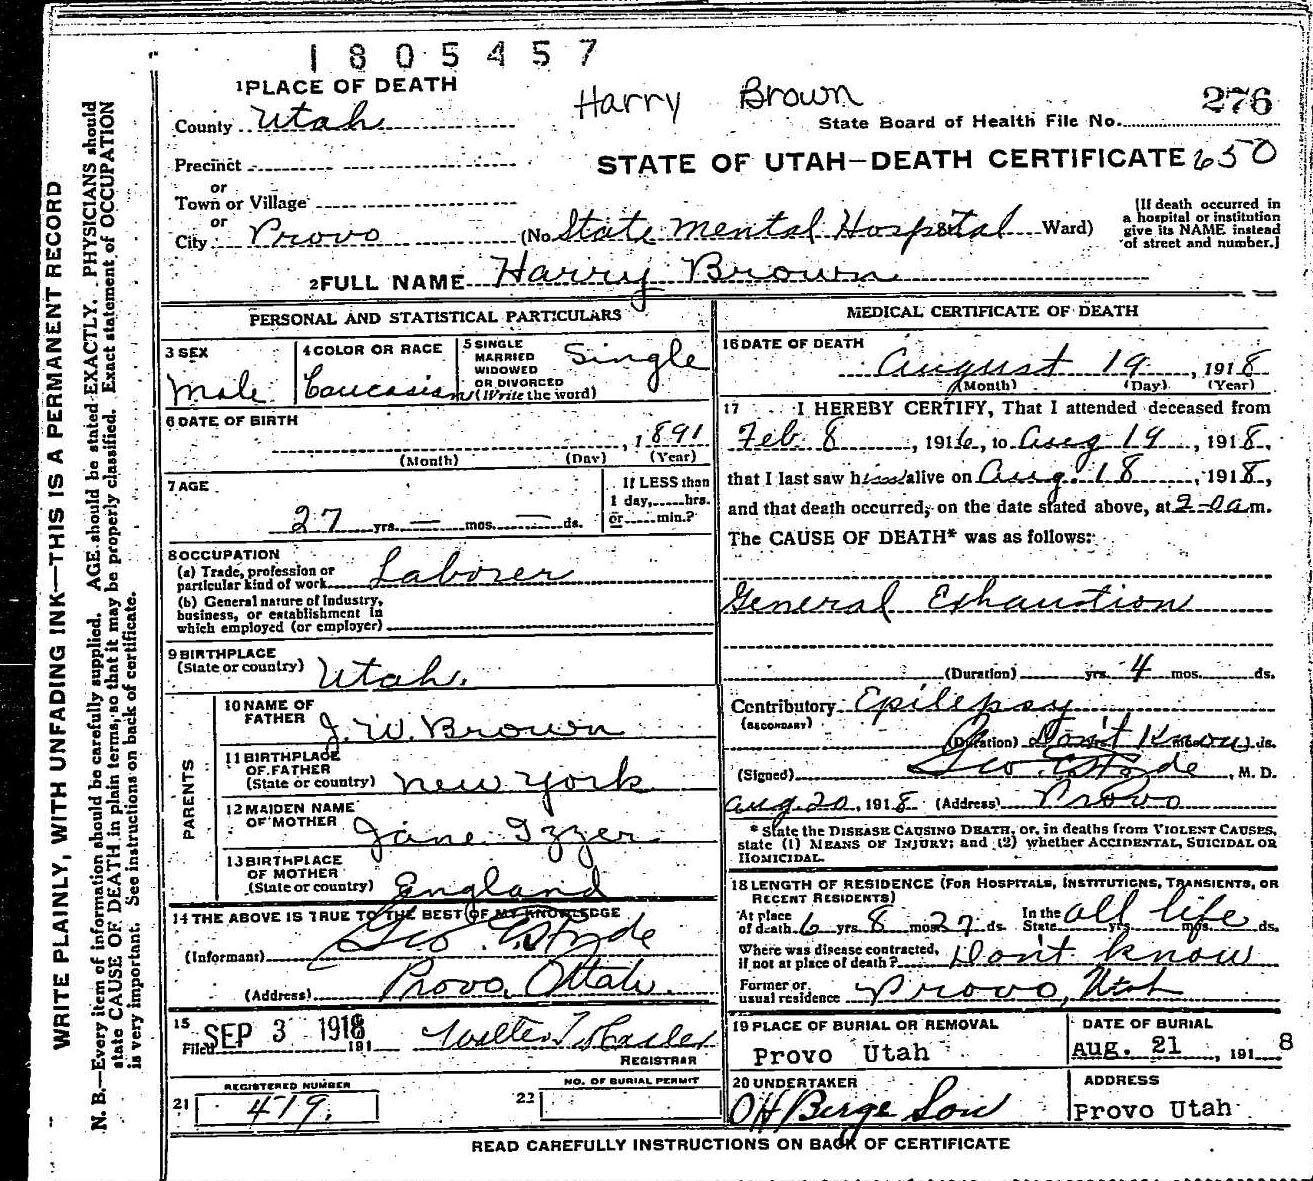 1805457
Harry Brown
276
1 PLACE OF DEATH
County Utah
State Board of Health File No.
Precinct
STATE OF UTAH—DEATH CERTIFICATE 650
or
Town or Village
or
City Provo (No. State Mental Hospital Ward)
[If death occurred in
a hospital or institution
give its NAME instead
of street and number.]
2 FULL NAME Harry Brown
PERSONAL AND STATISTICAL PARTICULARS
3 SEX
Male
4 COLOR OR RACE
Caucasian
5 SINGLE
MARRIED
WIDOWED
OR DIVORCED
(Write the word)
Single
6 DATE OF BIRTH
, 1891
(Month) (Day) (Year)
7 AGE
27 yrs. — mos. — ds.
If LESS than
1 day, hrs.
or min.?
8 OCCUPATION
(a) Trade, profession or
particular kind of work Laborer
(b) General nature of Industry,
business, or establishment in
which employed (or employer)
9 BIRTHPLACE
(State or country) Utah.
PARENTS
10 NAME OF
FATHER J. W. Brown
11 BIRTHPLACE
OF FATHER
(State or country) New York
12 MAIDEN NAME
OF MOTHER Jane Izzer
13 BIRTHPLACE
OF MOTHER
(State or country) England
14 THE ABOVE IS TRUE TO THE BEST OF MY KNOWLEDGE
(Informant) Geo. E. Hyde
(Address) Provo, Utah.
15
Filed SEP 3 1918 191
REGISTRAR
REGISTERED NUMBER
21 419.
NO. OF BURIAL PERMIT
22
MEDICAL CERTIFICATE OF DEATH
16 DATE OF DEATH
August 19, 1918
(Month) (Day) (Year)
17 I HEREBY CERTIFY, That I attended deceased from
Feb 8, 1916, to Aug 19, 1918,
that I last saw him alive on Aug. 18, 1918,
and that death occurred, on the date stated above, at 2-0 a m.
The CAUSE OF DEATH* was as follows:
General Exhaustion
(Duration) yrs. 4 mos. ds.
Contributory Epilepsy
(SECONDARY)
(Duration) Don't Know ds.
(Signed) Geo. E. Hyde, M. D.
Aug. 20, 1918 (Address) Provo
* State the DISEASE CAUSING DEATH, or, in deaths from VIOLENT CAUSES,
state (1) MEANS OF INJURY; and (2) whether ACCIDENTAL, SUICIDAL OR
HOMICIDAL.
18 LENGTH OF RESIDENCE (FOR HOSPITALS, INSTITUTIONS, TRANSIENTS, OR
RECENT RESIDENTS)
At place
of death 6 yrs. 8 mos. 27 ds.
In the
State all life yrs. mos. ds.
Where was disease contracted,
if not at place of death? Don't know
Former or
usual residence Provo, Utah
19 PLACE OF BURIAL OR REMOVAL
Provo Utah
DATE OF BURIAL
Aug. 21, 191 8
20 UNDERTAKER
OH Berge Son
ADDRESS
Provo Utah
READ CAREFULLY INSTRUCTIONS ON BACK OF CERTIFICATE
WRITE PLAINLY, WITH UNFADING INK—THIS IS A PERMANENT RECORD
N. B.—Every item of information should be carefully supplied. AGE should be stated EXACTLY. PHYSICIANS should
state CAUSE OF DEATH in plain terms, so that it may be properly classified. Exact statement of OCCUPATION
is very important. See instructions on back of certificate.